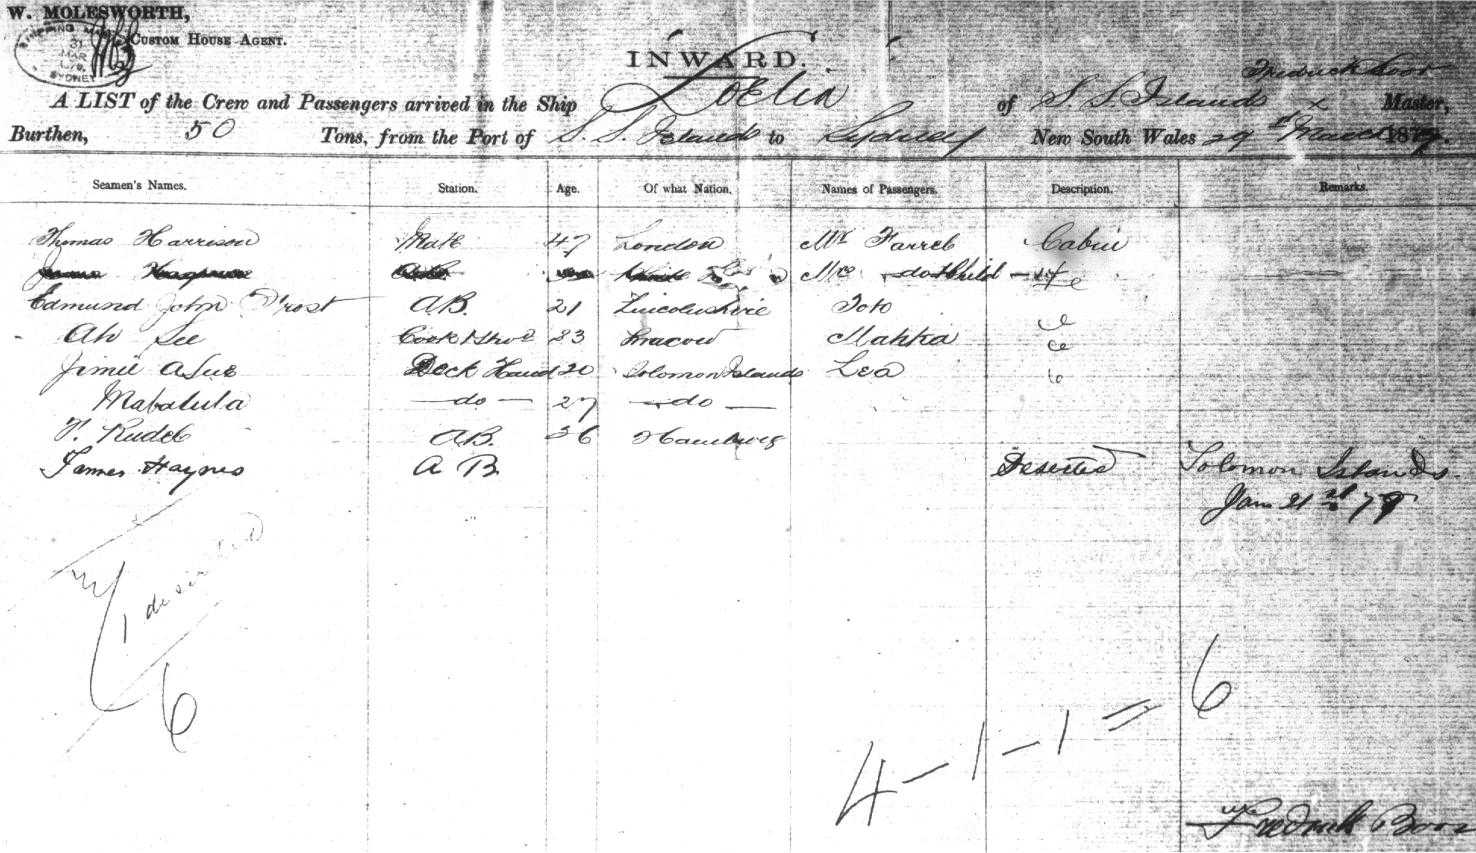 W. MOLESWORTH,
CUSTOM HOUSE AGENT.
SHIPPING
31
MAR
SYDNEY
INWARD.
Fredrick
A LIST of the Crew and Passengers arrived in the Ship Loelia of S. S. Islands x Master,
Burthen, 50 Tons, from the Port of S. S. Islands to Sydney New South Wales 29th March 1879.
Seamen's Names. Station. Age. Of what Nation. Names of Passengers. Description. Remarks.
Thomas Harrison Mate 47 London Mr Farrel Cabin
Mrs do & Child
Edmund John Frost A.B. 21 Lincolnshire Toto
Ah See Cook & 33 Macow Makka
Jimie Deck Hand 20 Solomon Islands Lea
Mabalula — do — 27 — do —
Rudel A.B. 36 Hamburg
James Haynes A B. Deserted Solomon Islands
Jan 21st 79
1 deserted
6
4 – 1 – 1 = 6
Fredrick